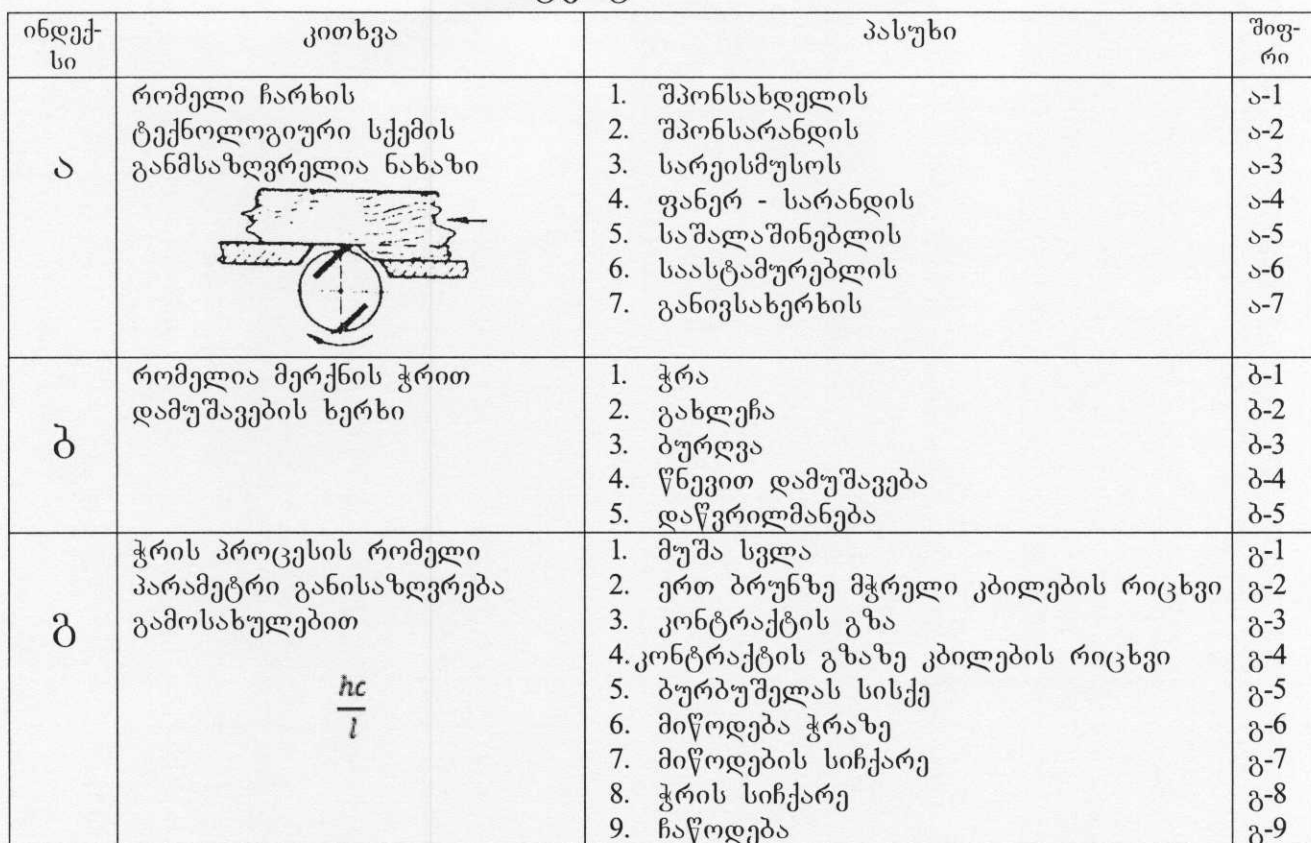 ინდექ-
სი
კითხვა
პასუხი
შიფ-
რი
ა
რომელი ჩარხის
ტექნოლოგიური სქემის
განმსაზღვრელია ნახაზი
1. შპონსახდელის
2. შპონსარანდის
3. სარეისმუსოს
4. ფანერ - სარანდის
5. საშალაშინებლის
6. საასტამურებლის
7. განივსახერხის
ა-1
ა-2
ა-3
ა-4
ა-5
ა-6
ა-7
ბ
რომელია მერქნის ჭრით
დამუშავების ხერხი
1. ჭრა
2. გახლეჩა
3. ბურღვა
4. წნევით დამუშავება
5. დაწვრილმანება
ბ-1
ბ-2
ბ-3
ბ-4
ბ-5
გ
ჭრის პროცესის რომელი
პარამეტრი განისაზღვრება
გამოსახულებით
hc
l
1. მუშა სვლა
2. ერთ ბრუნზე მჭრელი კბილების რიცხვი
3. კონტრაქტის გზა
4.კონტრაქტის გზაზე კბილების რიცხვი
5. ბურბუშელას სისქე
6. მიწოდება ჭრაზე
7. მიწოდების სიჩქარე
8. ჭრის სიჩქარე
9. ჩაწოდება
გ-1
გ-2
გ-3
გ-4
გ-5
გ-6
გ-7
გ-8
გ-9